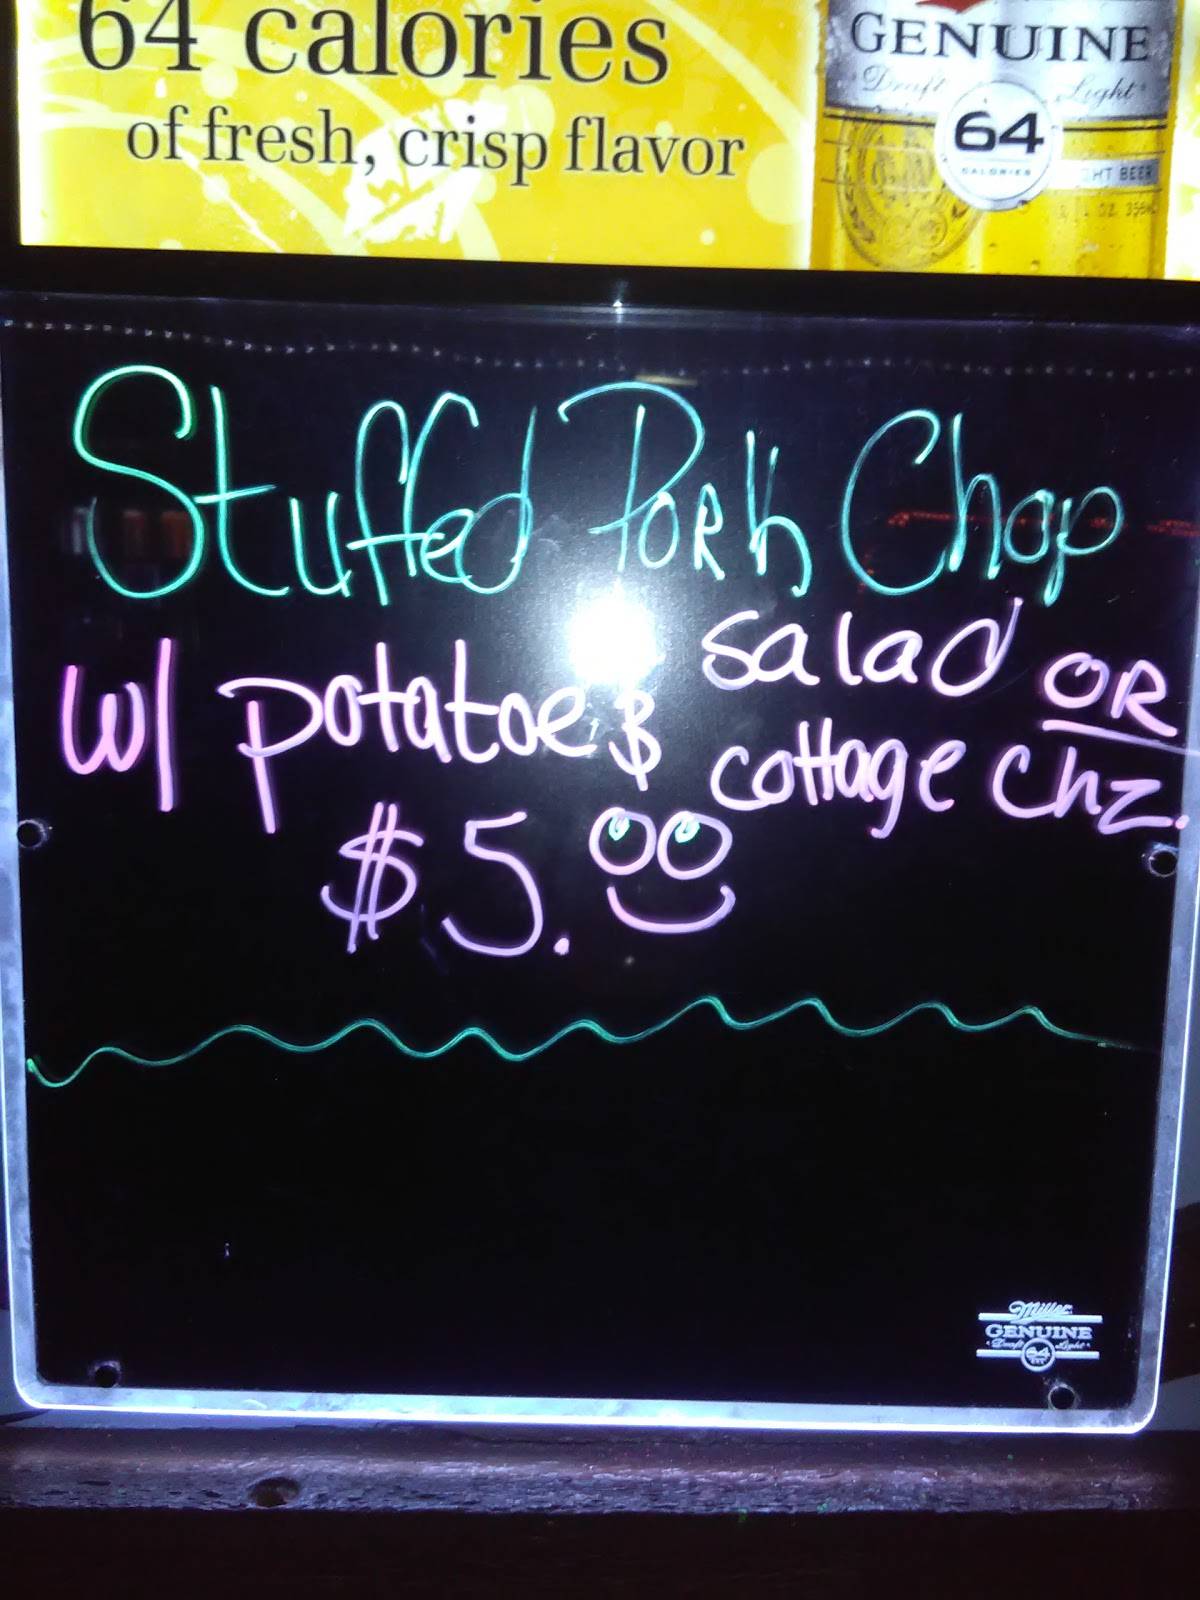 64 calories
of fresh, crisp flavor
GENUINE
Draft Light
64
CALORIES
HT BEER
OZ. 355
Stuffed Pork Chop
w/ potatoe &
salad OR
cottage chz.
$5.00
Miller
GENUINE
Draft Light
64